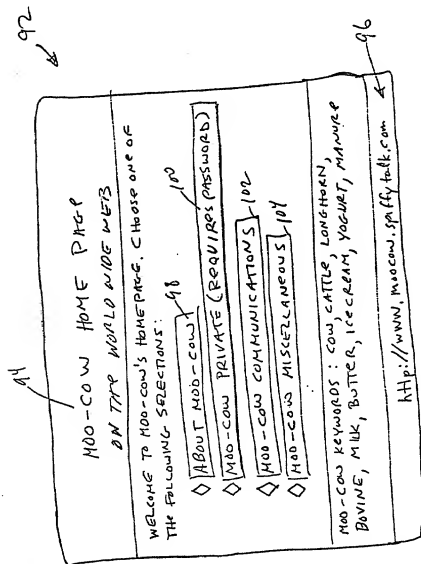 92
94
MOO-COW HOME PAGE
ON THE WORLD WIDE WEB
WELCOME TO MOO-COW'S HOMEPAGE. CHOOSE ONE OF
THE FOLLOWING SELECTIONS:
98
◇ ABOUT MOO-COW
100
◇ MOO-COW PRIVATE (REQUIRES PASSWORD)
◇ MOO-COW COMMUNICATIONS 102
◇ MOO-COW MISCELLANEOUS 104
MOO-COW KEYWORDS: COW, CATTLE, LONGHORN,
BOVINE, MILK, BUTTER, ICE CREAM, YOGURT, MANURE
http://www.moocow.spiffytalk.com
96